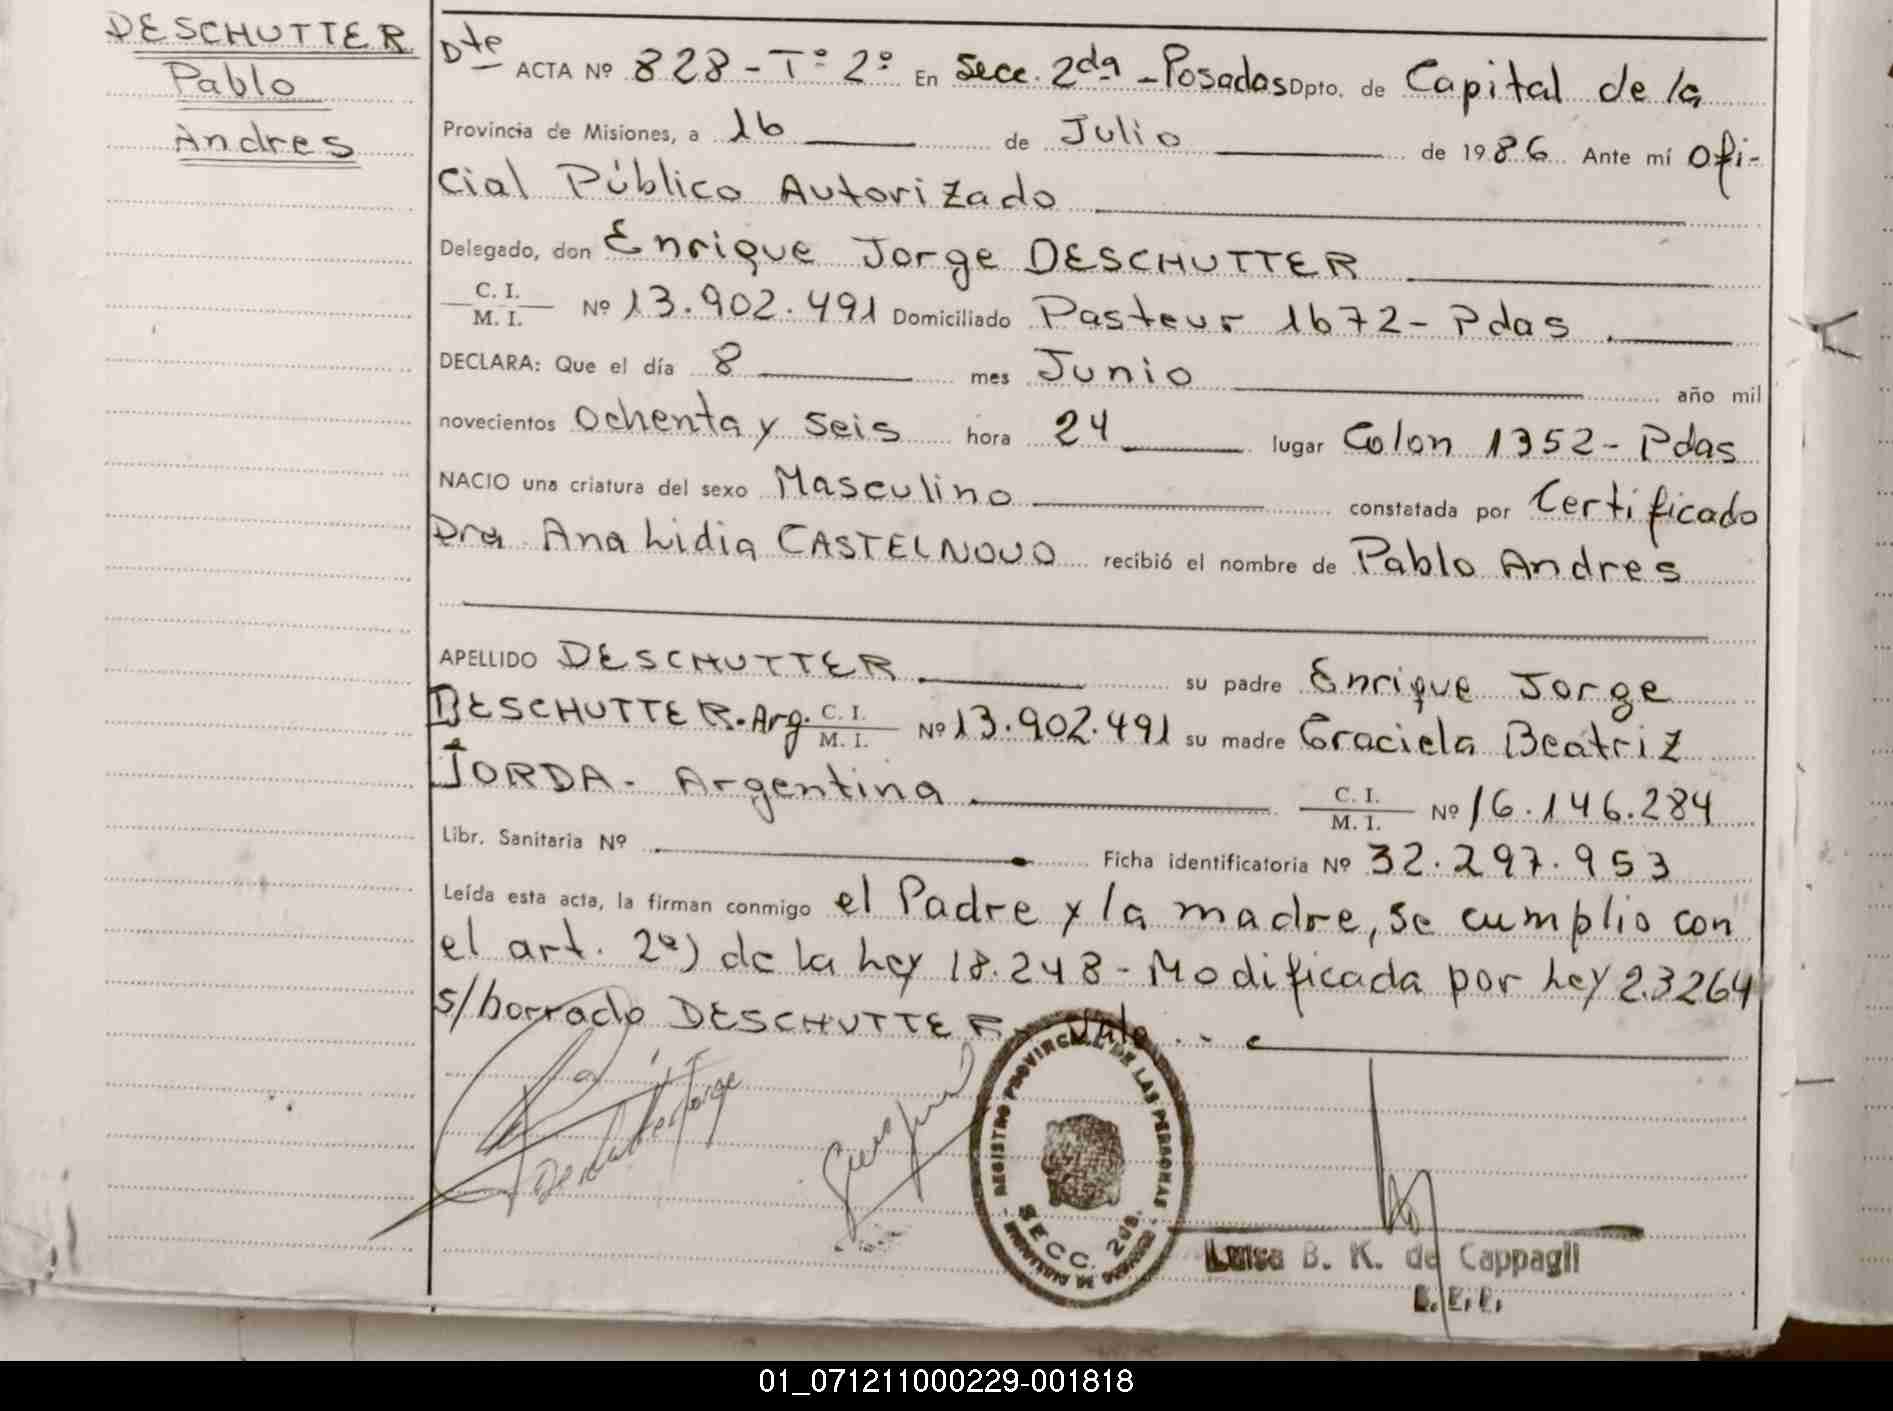 DESCHUTTER
Pablo
Andres
Dte ACTA Nº 828 - Tº 2º En Secc. 2da - Posadas Dpto. de Capital de la
Provincia de Misiones, a 16 de Julio de 1986 Ante mí Ofi-
cial Público Autorizado
Delegado, don Enrique Jorge DESCHUTTER
C. I.
M. I. Nº 13.902.491 Domiciliado Pasteur 1672 - Pdas
DECLARA: Que el día 8 mes Junio año mil
novecientos Ochenta y Seis hora 24 lugar Colon 1352 - Pdas
NACIO una criatura del sexo Masculino constatada por Certificado
Dra Ana Lidia CASTELNOVO recibió el nombre de Pablo Andres
APELLIDO DESCHUTTER su padre Enrique Jorge
DESCHUTTER. Arg. C. I.
M. I. Nº 13.902.491 su madre Graciela Beatriz
JORDA - Argentina C. I.
M. I. Nº 16.146.284
Libr. Sanitaria Nº Ficha identificatoria Nº 32.297.953
Leída esta acta, la firman conmigo el Padre y la madre, se cumplio con
el art. 2º) de la Ley 18.248 - Modificada por Ley 23264
s/borrado DESCHUTTER. Vale
REGISTRO PROVINCIAL DE LAS PERSONAS
SECC. 2da.
Luisa B. K. de Cappagli
01_071211000229-001818